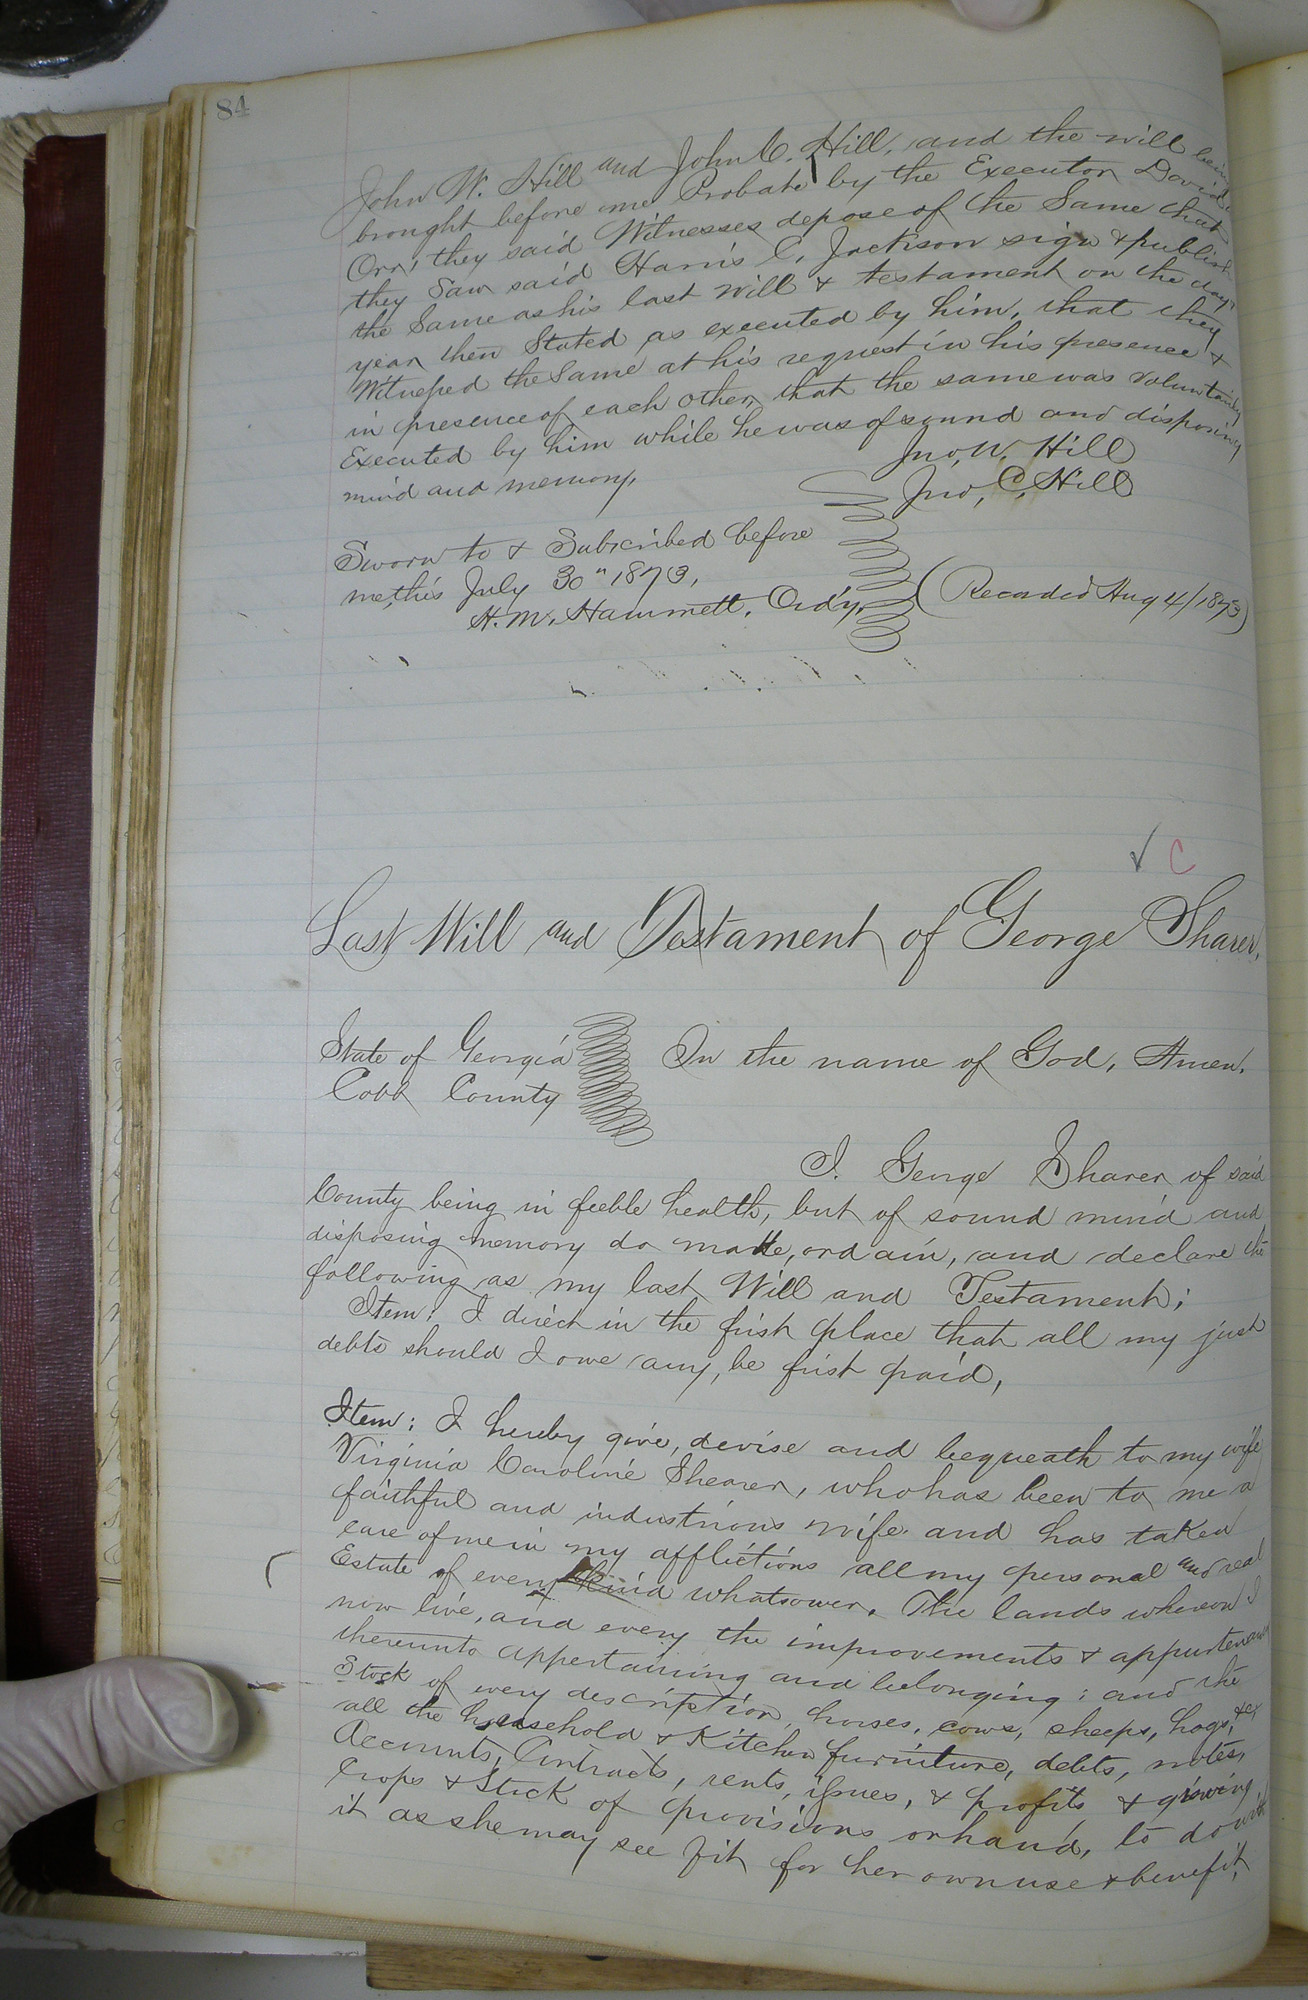 84
John W. Hill and John C. Hill, and the will being
brought before me Probate by the Executor David
Orr, they said Witnesses depose of the Same that
they Saw said Harris C. Jackson sign & publish
the Same as his last will & testament on the day &
year then Stated as executed by him, that they
Witnessed the Same at his request in his presence &
in presence of each other, that the same was voluntarily
Executed by him while he was of sound and disposing
mind and memory,
Jno, W. Hill
Jno, C, Hill
Sworn to & Subscribed before
me, this July 30" 1873,
H. M. Hammett, Ord'y,
(Recorded Aug 4/1873)
✓ C
Last Will and Testament of George Sharer,
State of Georgia
Cobb County
In the name of God, Amen.
I. George Sharer of said
County being in feeble health, but of sound mind and
disposing memory do make, ordain, and declare the
following as my last Will and Testament;
Item: I direct in the first place that all my just
debts should I owe any, be first paid,
Item: I hereby give, devise and bequeath to my wife
Virginia Caroline Shearer, who has been to me a
faithful and industrious wife and has taken
care of me in my afflictions all my personal and real
Estate of every kind whatsower. The lands whereon I
now live, and every the improvements & appurtenances
thereunto appertaining and belonging; and the
Stock of every description, horses, cows, sheeps, hogs, &c
all the household & Kitchen furniture, debts, notes,
Accounts, Contracts, rents, issues, & profits & growing
Crops & Stock of provisions on hand, to do with
it as she may see fit for her own use & benefit,